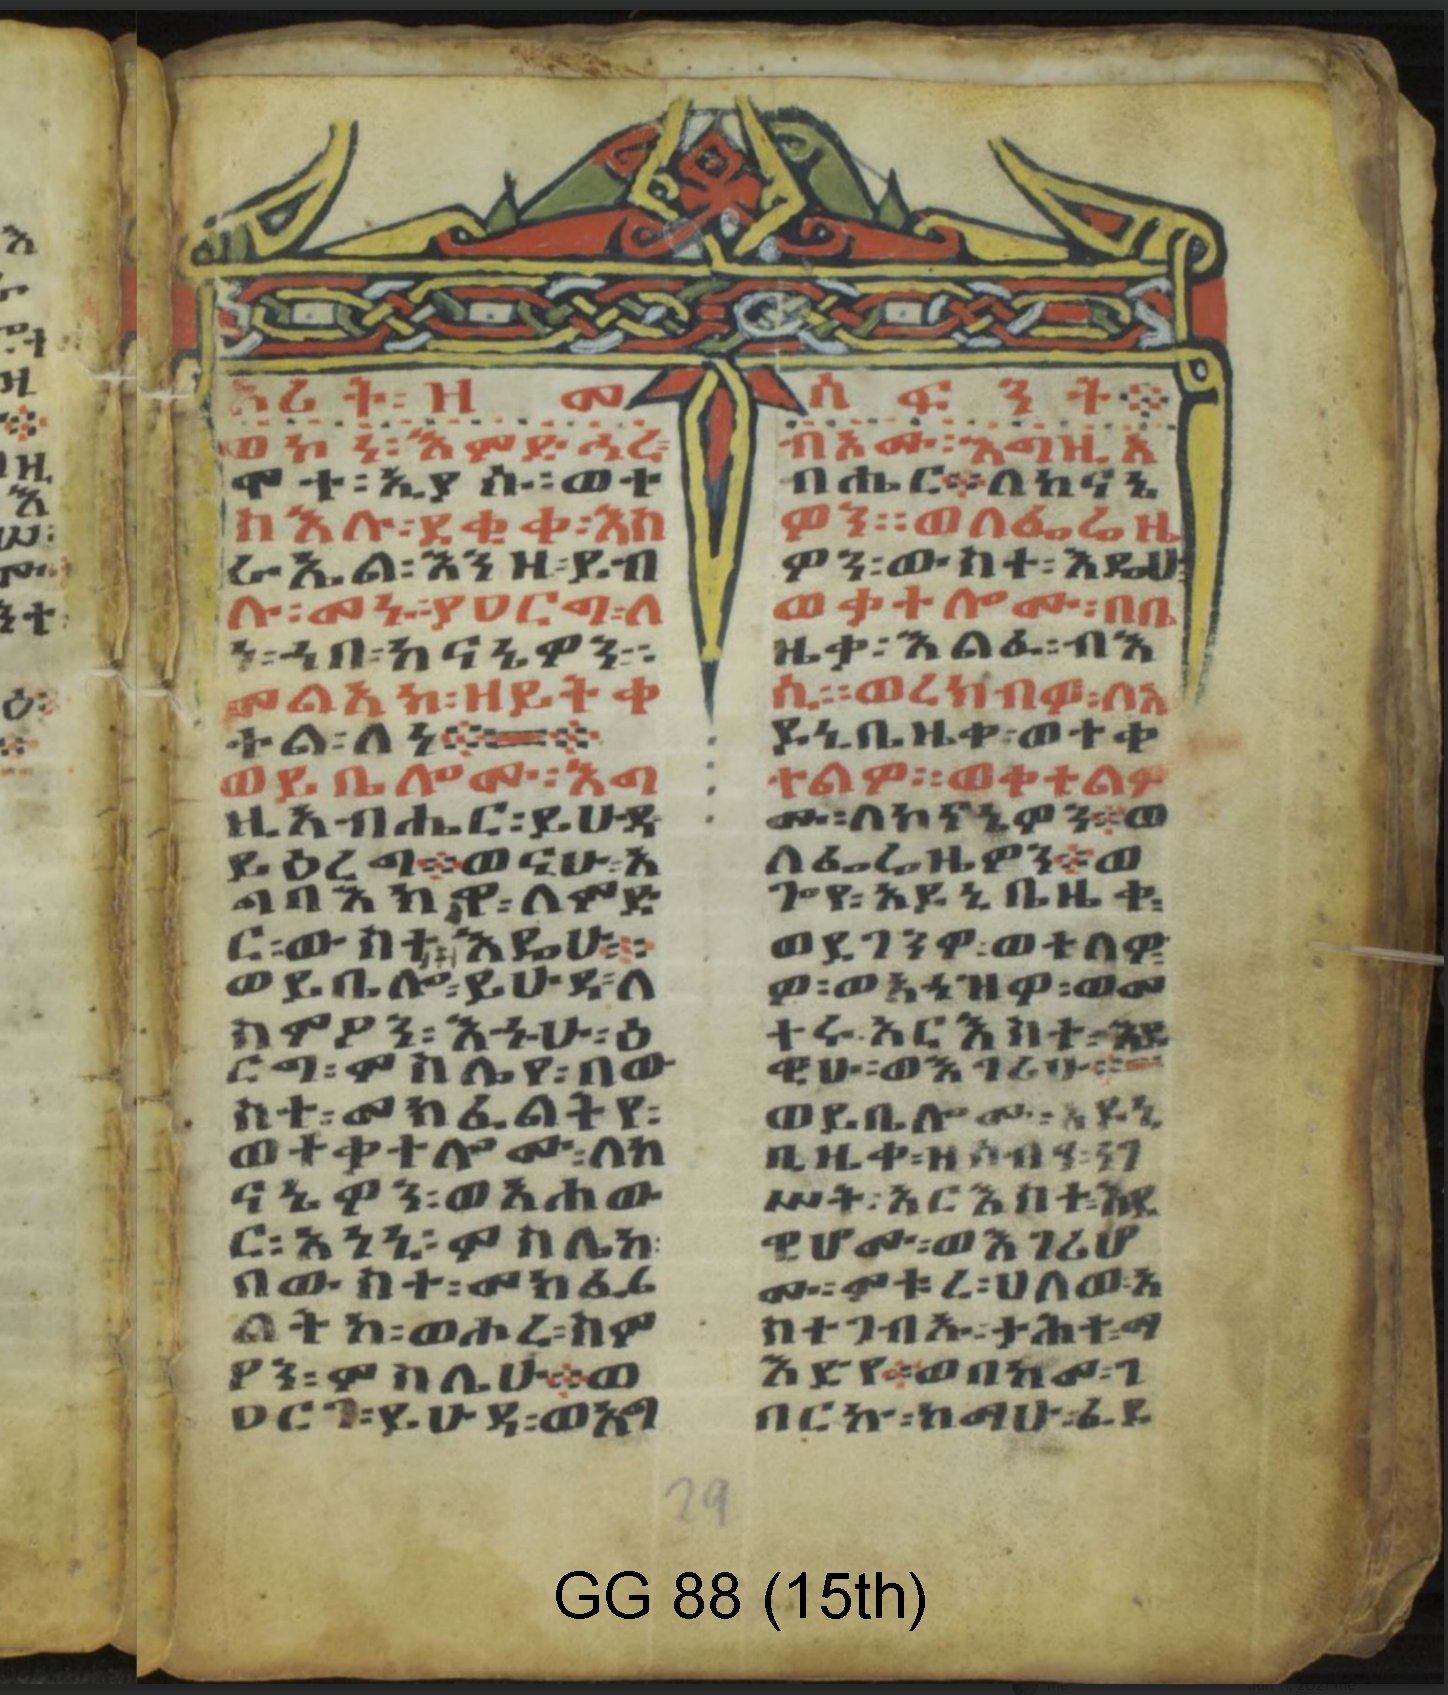 ኦሪት፡ ዘ መ ሳ ፍ ን ት ፨
ወኮነ፡ እምድኅረ፡
ሞተ፡ ኢያሱ፡ ወተ
ስእሉ፡ ደቂቀ፡ እስ
ራኤል፡ እንዘ፡ ይብ
ሉ፡ መኑ፡ የዐርግ፡ ለ
ነ፡ ኀበ፡ ከናኔዎን፡፡
መልእከ፡ ዘይትቀ
ተል፡ ለነ፨
ወይቤሎሙ፡ እግ
ዚአብሔር፡ ይሁዳ
ይዕረግ፨ ወናሁ፡ አ
ግባእክዋ፡ ለምድ
ር፡ ውስተ፡ እዴሁ፡፡
ወይቤሎ፡ ይሁዳ፡ ለ
ስምዖን፡ እኁሁ፡ ዕ
ርግ፡ ምስሌየ፡ በው
ስተ፡ መክፈልትየ፡
ወተቃተሎሙ፡ ለከ
ናኔዎን፡ ወአሐው
ር፡ አንኒ፡ ምስሌከ፡
በውስተ፡ መክፈ
ልትከ፡ ወሖረ፡ ስም
ዖን፡ ምስሌሁ፨ ወ
ዐርገ፡ ይሁዳ፡ ወአግ
ብአሙ፡ እግዚአ
ብሔር፨ ለከናኔ
ዎን፡፡ ወለፌሬዜ
ዎን፡ ውስተ፡ እዴሁ፡
ወቃተሎሙ፡ በቤ
ዜቃ፡ እልፈ፡ ብእ
ሴ፡፡ ወረከብዎ፡ ለአ
ዶኒቤዜቀ፡ ወተቀ
ተልዎ፡፡ ወቀተልዎ
ሙ፡ ለከናኔዎን፨ ወ
ለፌሬዜዎን፨ ወ
ጐየ፡ አዶኒቤዜቀ፡
ወዴገንዎ፡ ወተለዎ
ዎ፡ ወአኀዝዎ፡ ወመ
ተሩ፡ አርእስተ፡ እደ
ዊሁ፡ ወእገሪሁ፨
ወይቤሎሙ፡ አዶኒ
ቤዜቀ፡ ዘሰብዓ፡ ነገ
ሥት፡ አርእስተ፡ እደ
ዊሆሙ፡ ወእገሪሆ
ሙ፡ ምቱረ፡ ሀለው፡ እ
ስተገብኡ፡ ታሕተ፡ ማ
እድየ፨ ወበከመ፡ ገ
በርኩ፡ ከማሁ፡ ፈደ
29
GG 88 (15th)